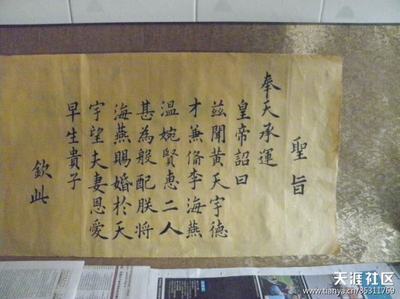 聖旨
奉天承運
皇帝詔曰
茲聞黃天宇德
才兼俻李海燕
溫婉賢惠二人
甚為般配朕將
海燕賜婚於天
宇望夫妻恩愛
早生貴子
欽此
天涯社区
www.tianya.cn/85311769